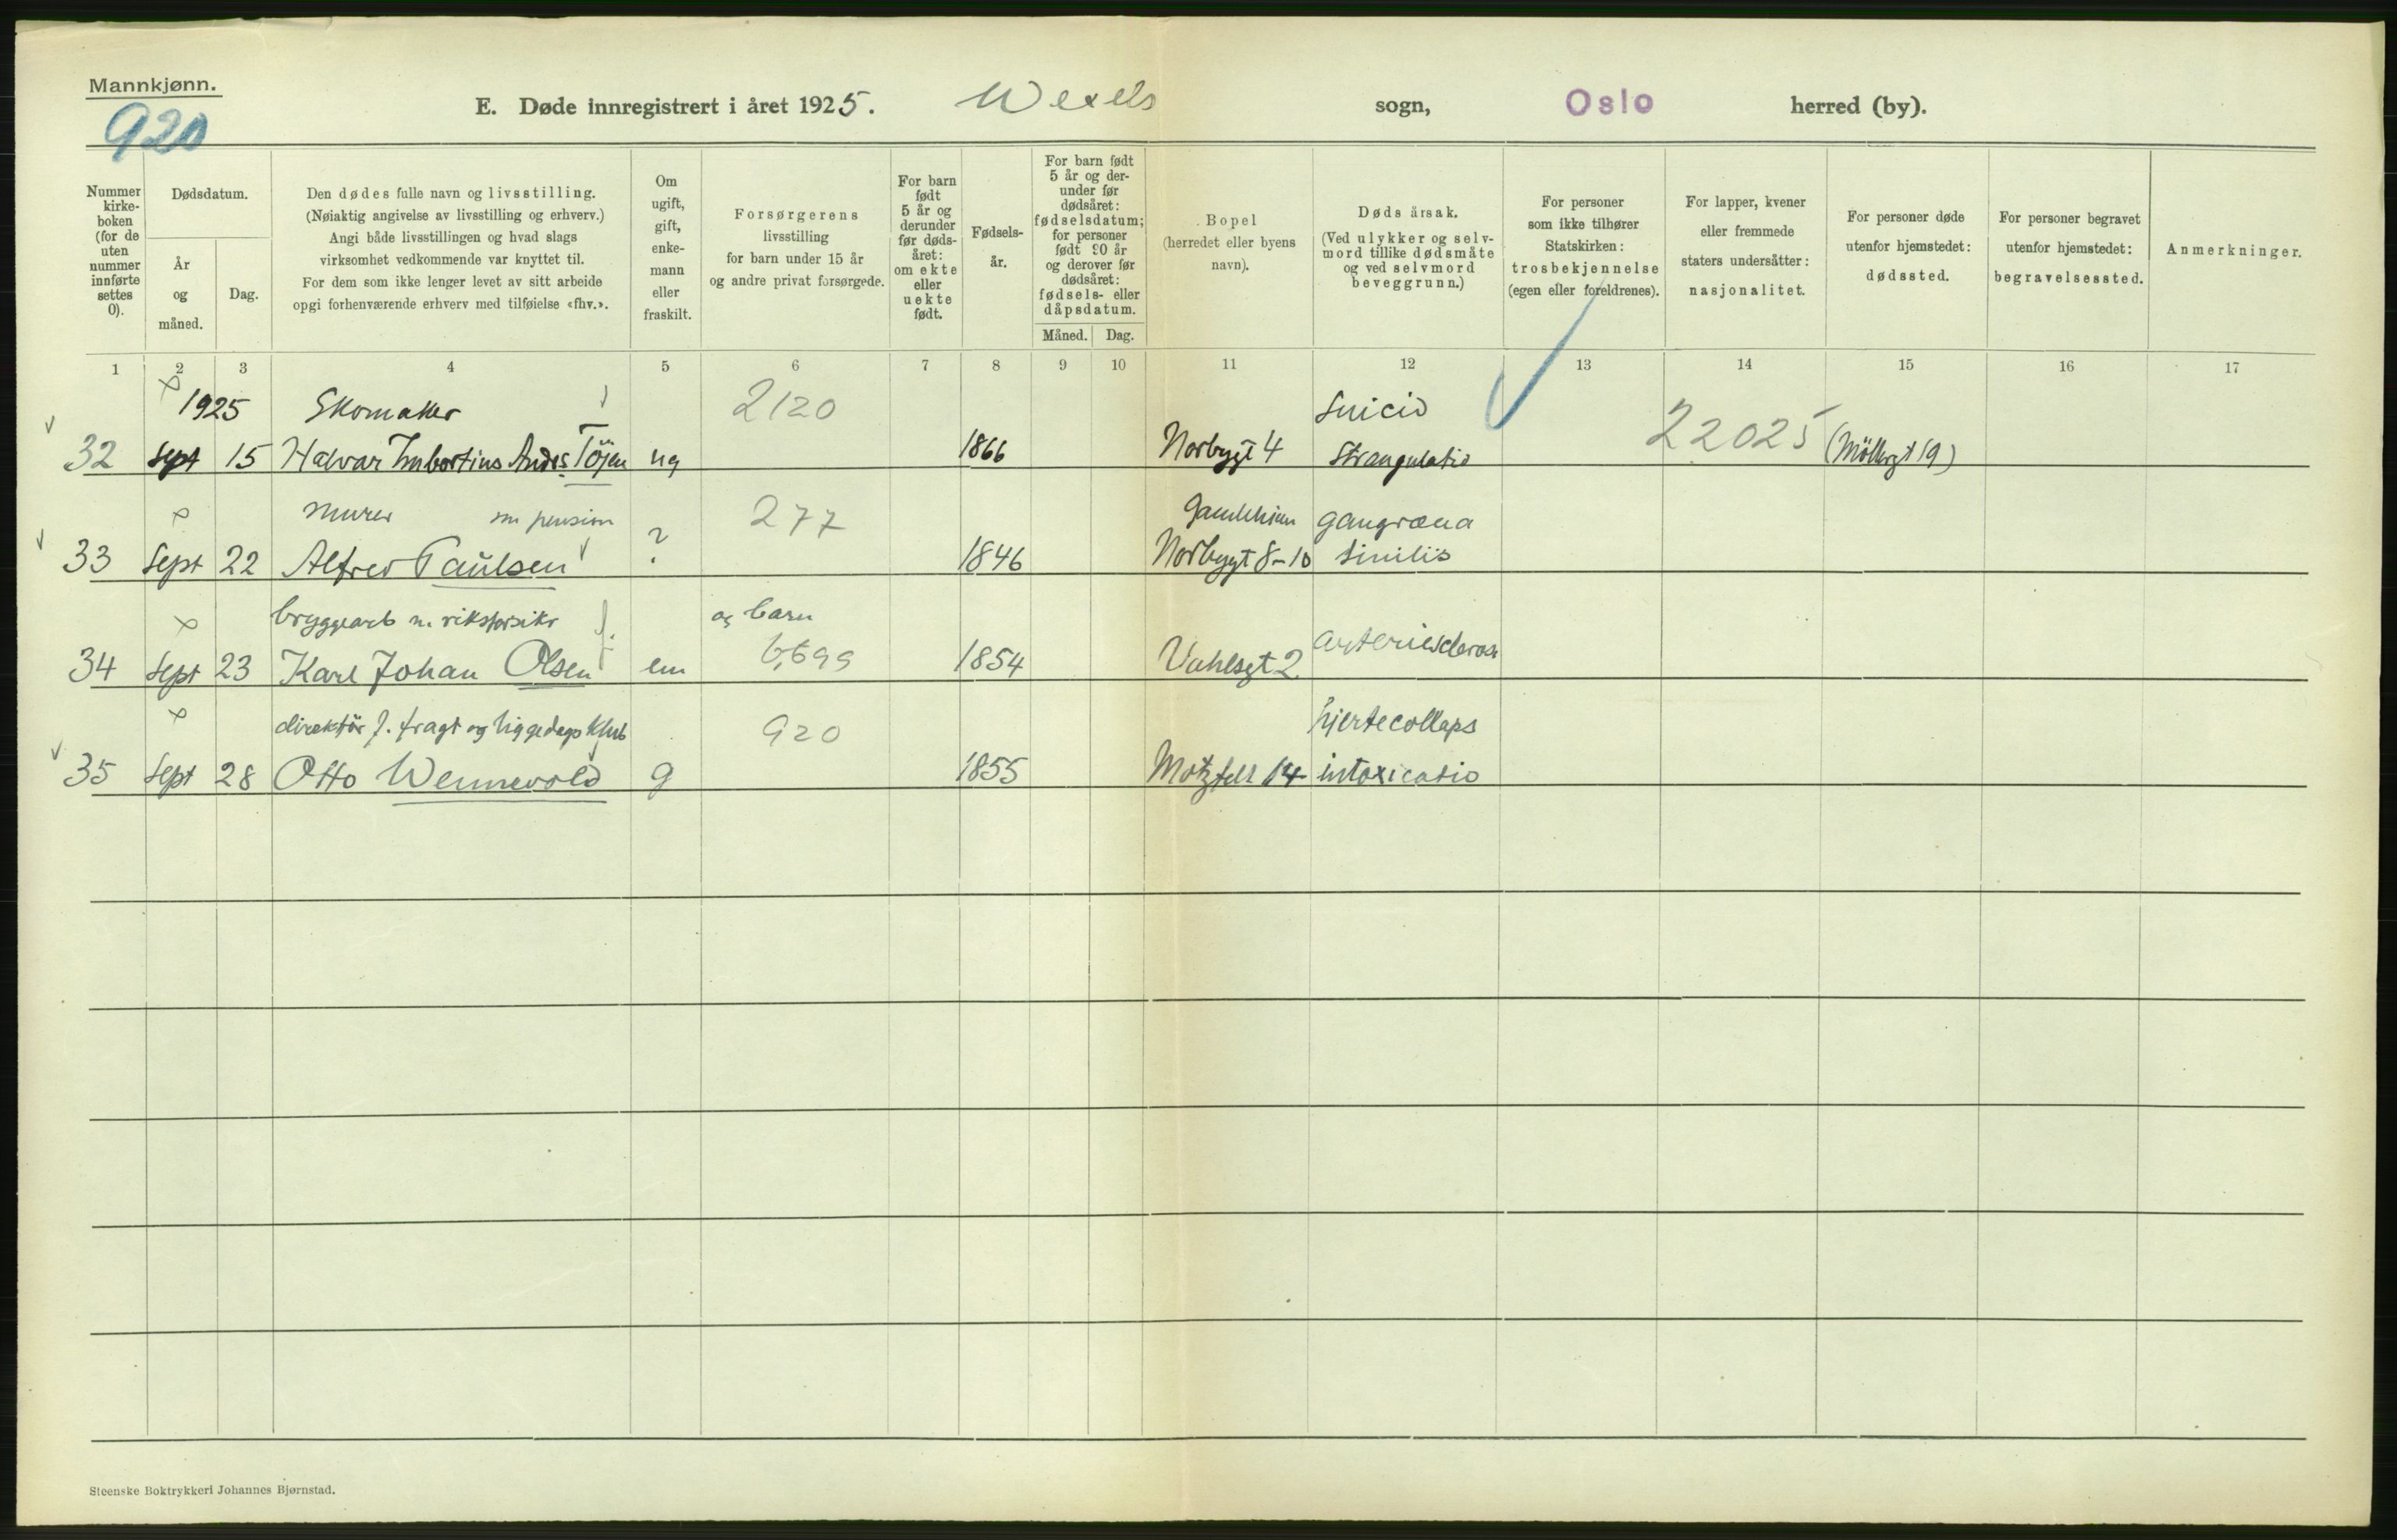 Mannkjønn.
920
E. Døde innregistrert i året 1925. Wexels sogn, Oslo herred (by).
Nummer kirke-boken (for de uten nummer innførte settes 0).
Dødsdatum.
År og måned.
Dag.
Den dødes fulle navn og livsstilling.
(Nøiaktig angivelse av livsstilling og erhverv.)
Angi både livsstillingen og hvad slags
virksomhet vedkommende var knyttet til.
For dem som ikke lenger levet av sitt arbeide
opgi forhenværende erhverv med tilføielse «fhv.».
Om ugift, gift, enke-mann eller fraskilt.
Forsørgerens
livsstilling
for barn under 15 år
og andre privat forsørgede.
For barn født 5 år og derunder før døds-året: om ekte eller uekte født.
Fødsels-år.
For barn født 5 år og der-under før dødsåret: fødselsdatum; for personer født 90 år og derover før dødsåret: fødsels- eller dåpsdatum.
Måned. Dag.
Bopel
(herredet eller byens
navn).
Dødsårsak.
(Ved ulykker og selv-
mord tillike dødsmåte
og ved selvmord
beveggrunn.)
For personer
som ikke tilhører
Statskirken:
trosbekjennelse
(egen eller foreldrenes).
For lapper, kvener
eller fremmede
staters undersåtter:
nasjonalitet.
For personer døde
utenfor hjemstedet:
dødssted.
For personer begravet
utenfor hjemstedet:
begravelsessted.
Anmerkninger.
1 2 3 4 5 6 7 8 9 10 11 12 13 14 15 16 17
1925 Skomaker 2120 Suicid 22025
32 Sept 15 Halvar Andrs Töjen ug 1866 Norbygt 4 Strangulatio (Möllergt 19)
murer m pension 277 Gamlehjem gangræna
33 Sept 22 Alfred Paulsen ? 1846 Norbygt 8-10 sinilis
bryggearb m. riksforsikr og barn
34 Sept 23 Karl Johan Olsen em 6,699 1854 Vahlsgt 2 arteriesclerose
direktör f. fragt og liggedagsklub 920 hjertecollaps
35 Sept 28 Otto Wennevold g 1855 Motzfelt 14 intoxicatio
Steenske Boktrykkeri Johannes Bjørnstad.